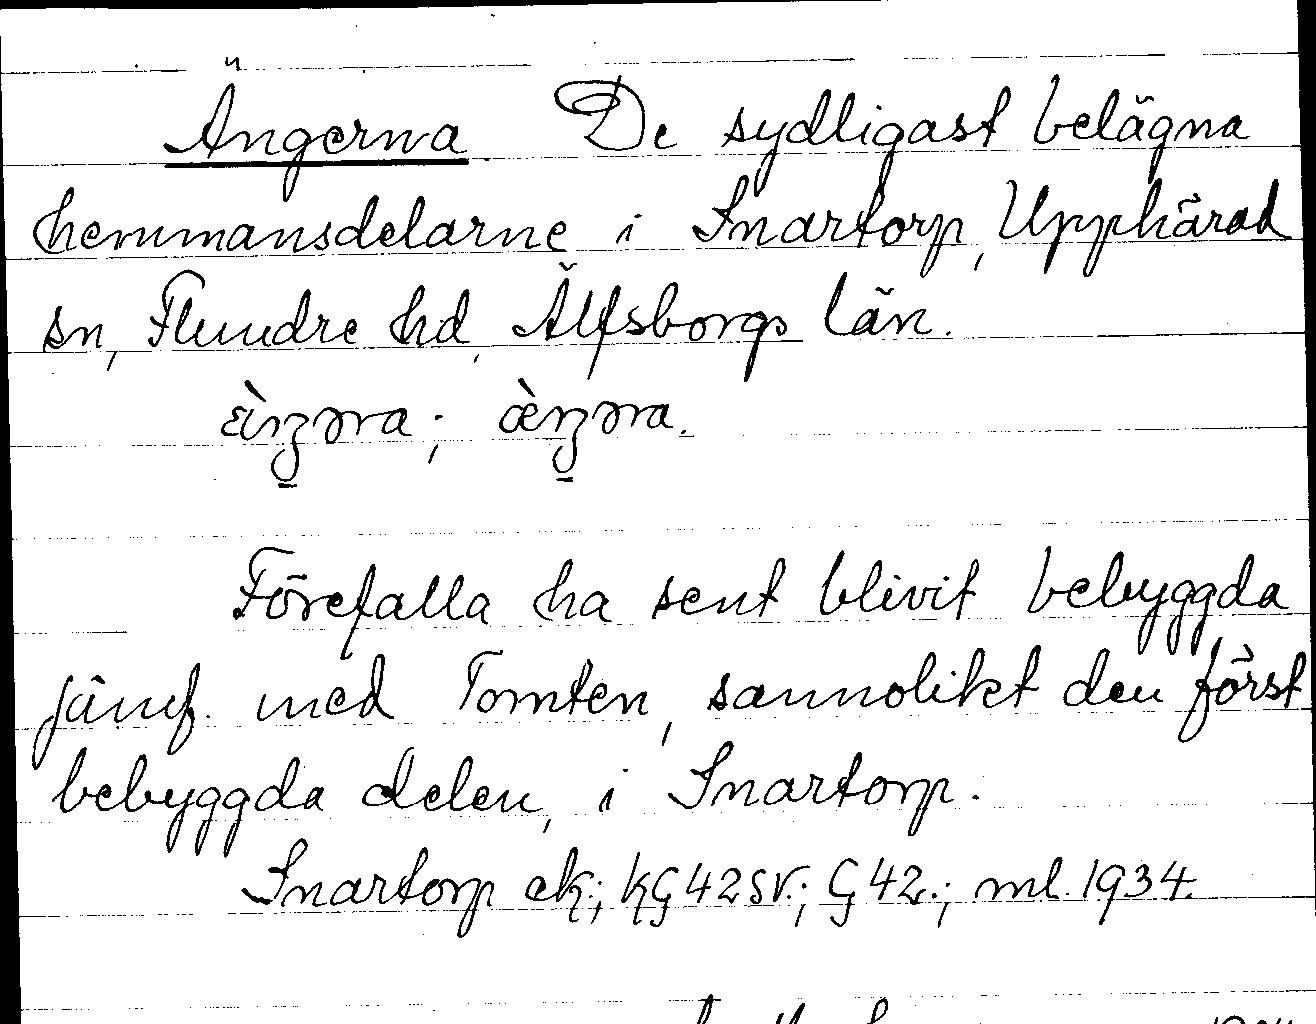 Ängerna De sydligast belägna
hemmansdelarne i Snartorp, Upphärad
sn, Flundre hd, Älfsborgs län.
Förefalla ha sent blivit bebyggda
jämf. med Tomten, sannolikt den först
bebyggda delen, i Snartorp.
Snartorp ek; kG42SV.; G42.; ml. 1934.